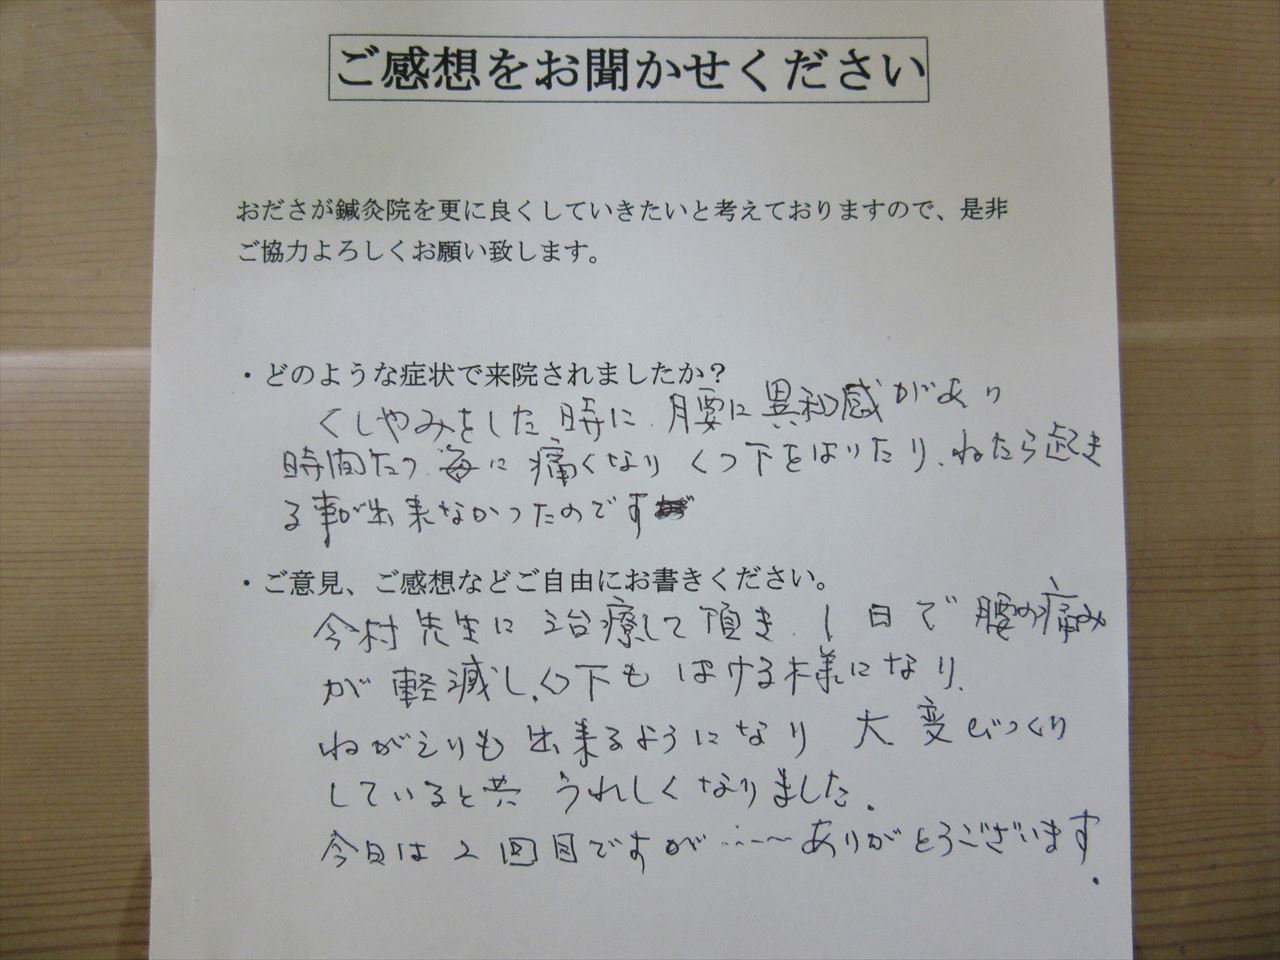 ご感想をお聞かせください
おださが鍼灸院を更に良くしていきたいと考えておりますので、是非
ご協力よろしくお願い致します。
・どのような症状で来院されましたか？
くしやみをした時に腰に異和感があり
時間たつ毎に痛くなりくつ下をはりたり、ねたら起き
る事が出来なかったのです
・ご意見、ご感想などご自由にお書きください。
今村先生に治療して頂き、1日で腰の痛み
が軽減し、くつ下もはける様になり、
ねがえりも出来るようになり大変びっくり
していると共うれしくなりました。
今日は2回目ですが……〜ありがとうございます。